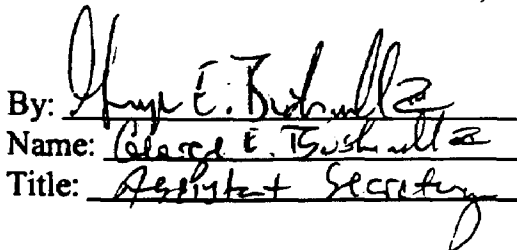 By: George E. Bushnell III
Name: George E. Bushnell III
Title: Assistant Secretary